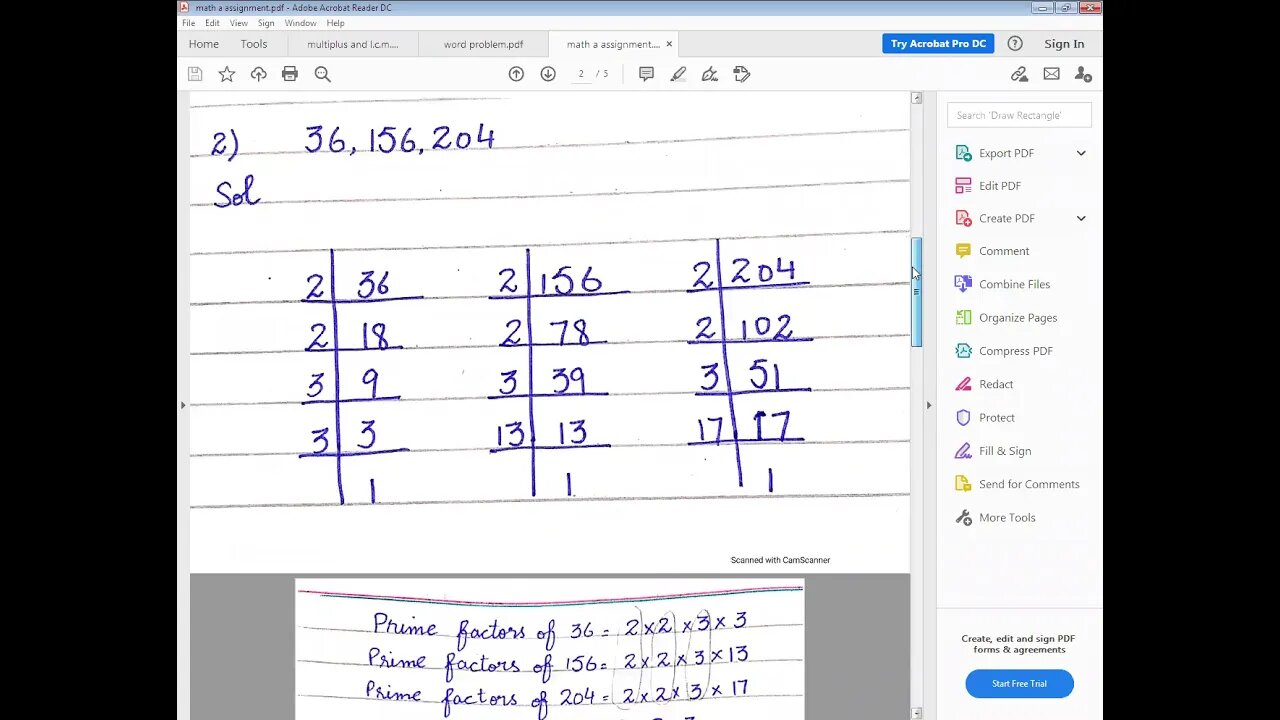 math a assignment.pdf - Adobe Acrobat Reader DC
File Edit View Sign Window Help
Home Tools multiplus and l.c.m.... word problem.pdf math a assignment.... × Try Acrobat Pro DC Sign In
2 / 5
2) 36, 156, 204
Sol
2 36 2 156 2 204
2 18 2 78 2 102
3 9 3 39 3 51
3 3 13 13 17 17
1 1 1
Scanned with CamScanner
Prime factors of 36 = 2×2×3×3
Prime factors of 156= 2×2×3×13
Prime factors of 204 = 2×2×3×17
Search 'Draw Rectangle'
Export PDF
Edit PDF
Create PDF
Comment
Combine Files
Organize Pages
Compress PDF
Redact
Protect
Fill & Sign
Send for Comments
More Tools
Create, edit and sign PDF
forms & agreements
Start Free Trial